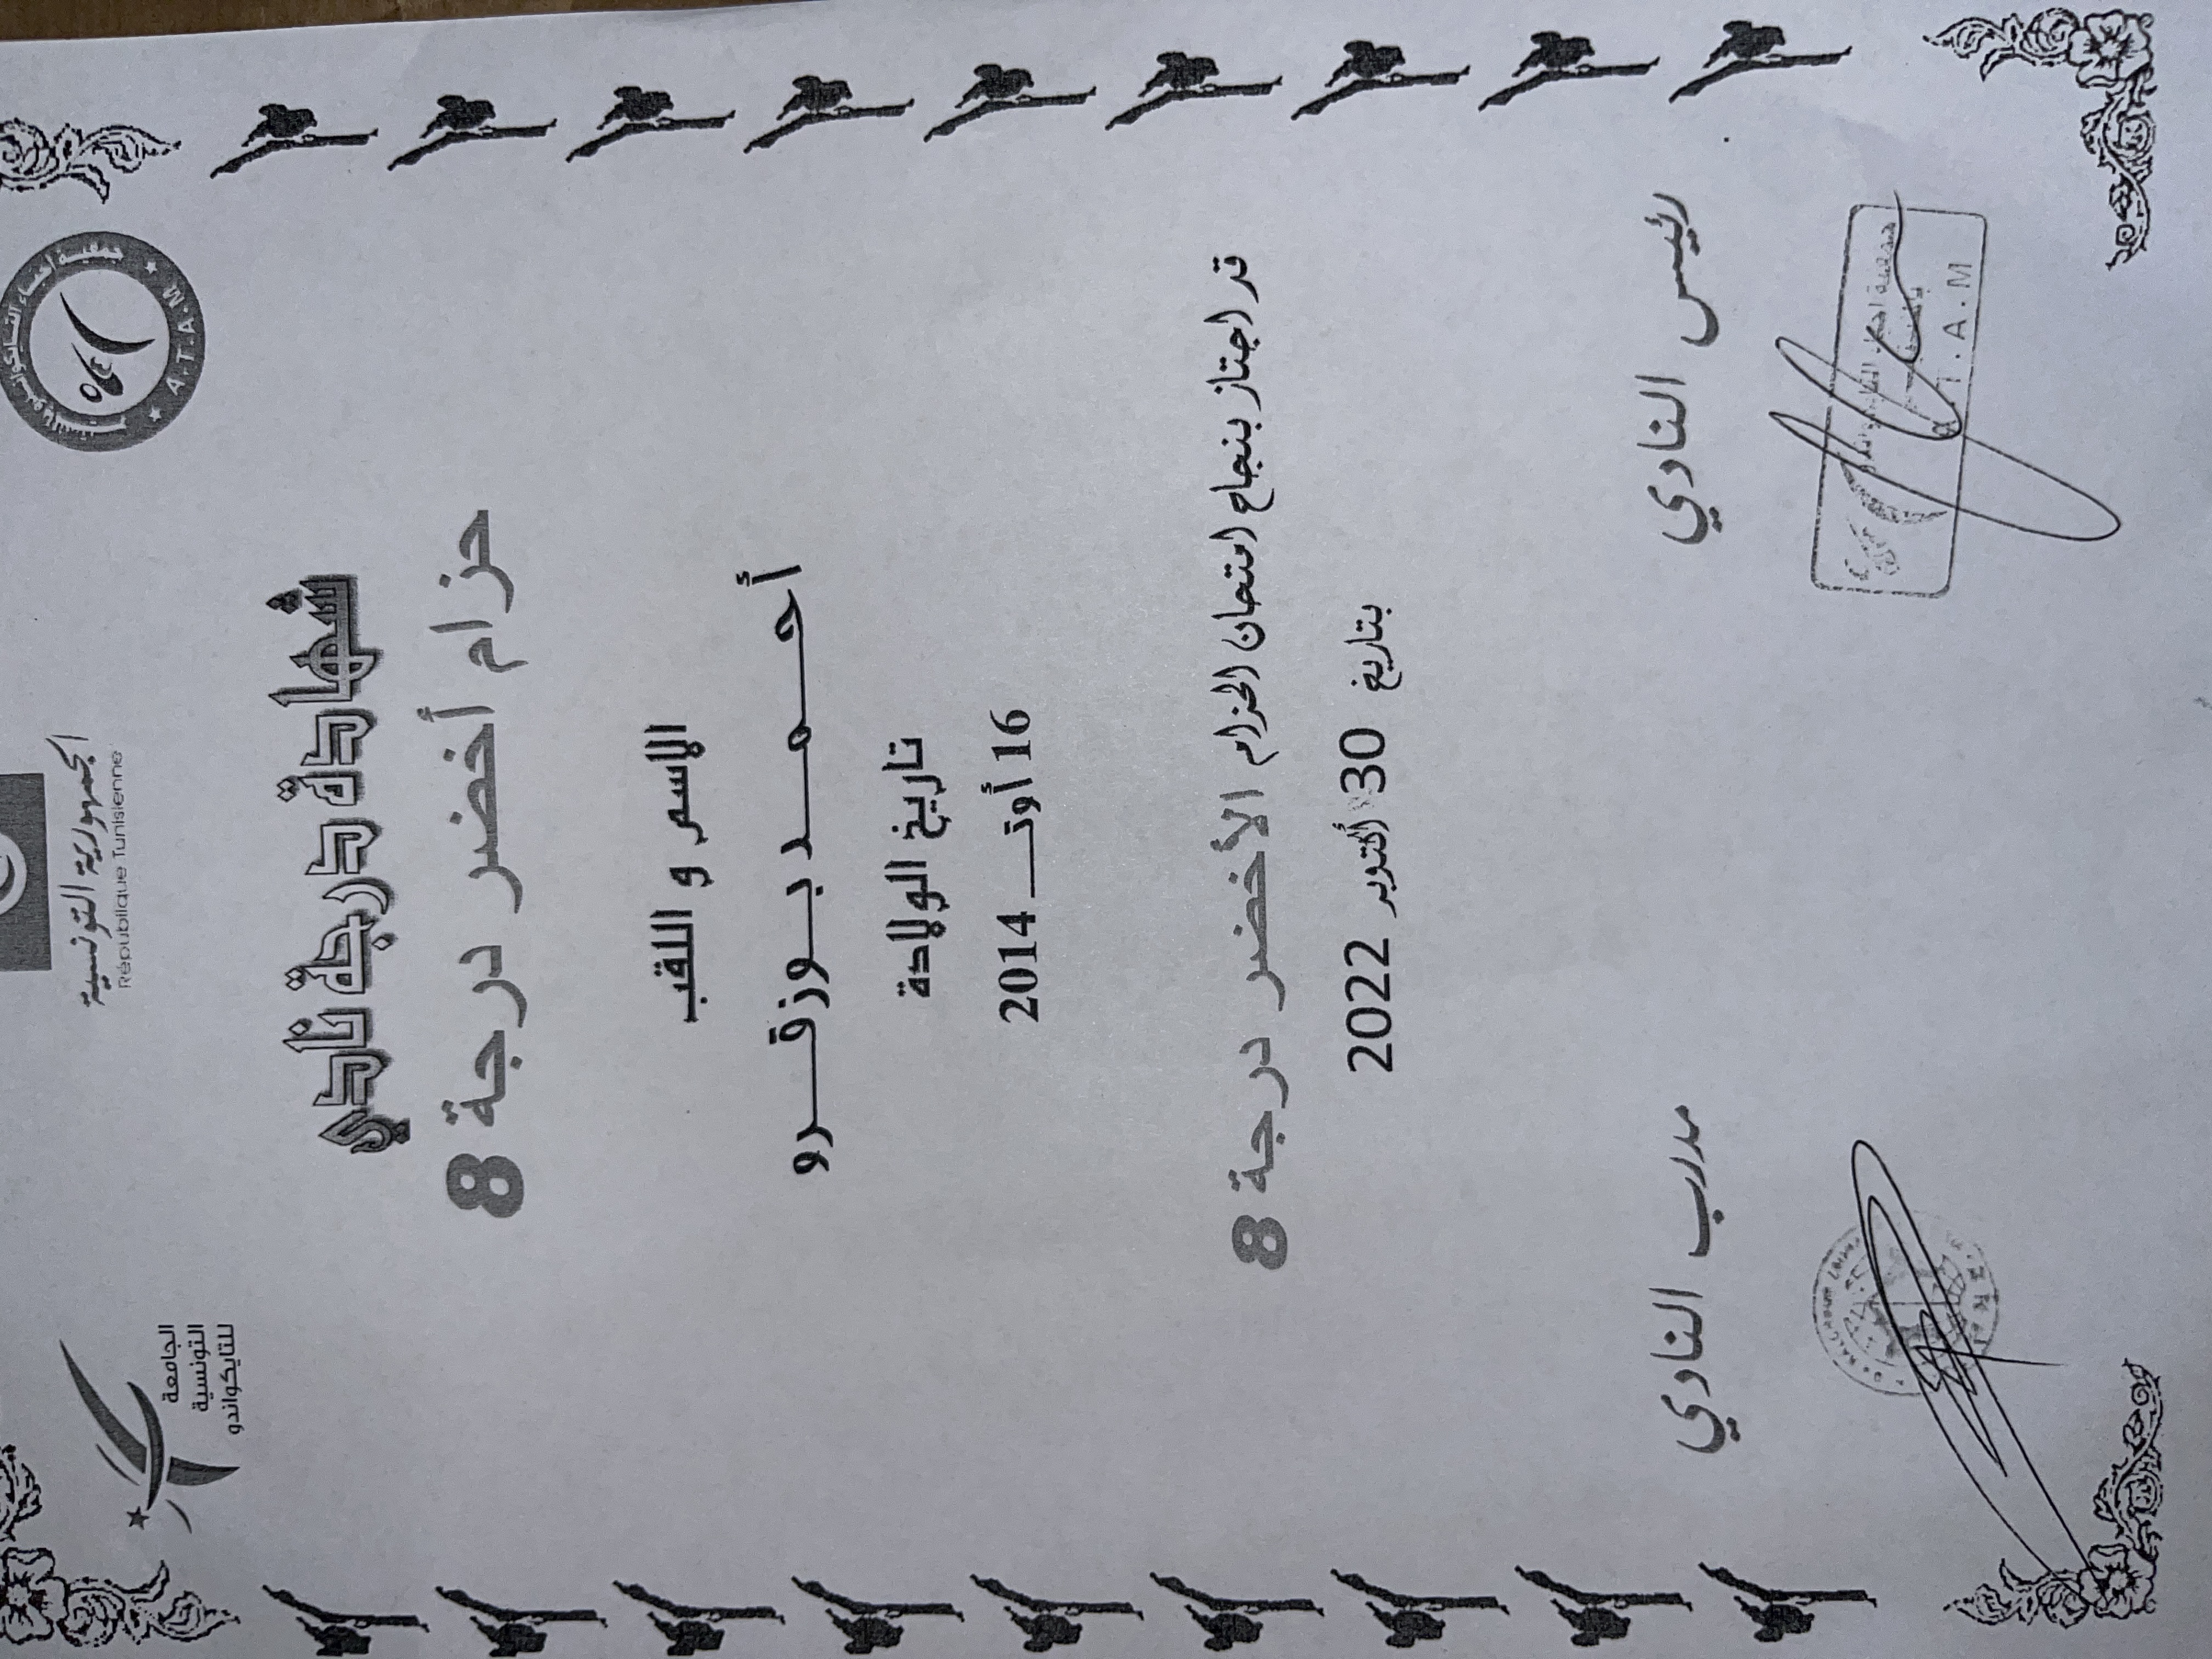 الجمهورية التونسية
République Tunisienne
A.T.A.M
الجامعة
التونسية
للتايكواندو
شهادة درجة نادي
حزام أخضر درجة 8
الاسم و اللقب
أحـــمـــد بـــوزقـــرو
تاريخ الولادة
16 أوتـــ 2014
قد اجتاز بنجاح امتحان الحزام الأخضر درجة 8
بتاريخ 30 أكتوبر 2022
رئيس النادي
مدرب النادي
A.T.A.M